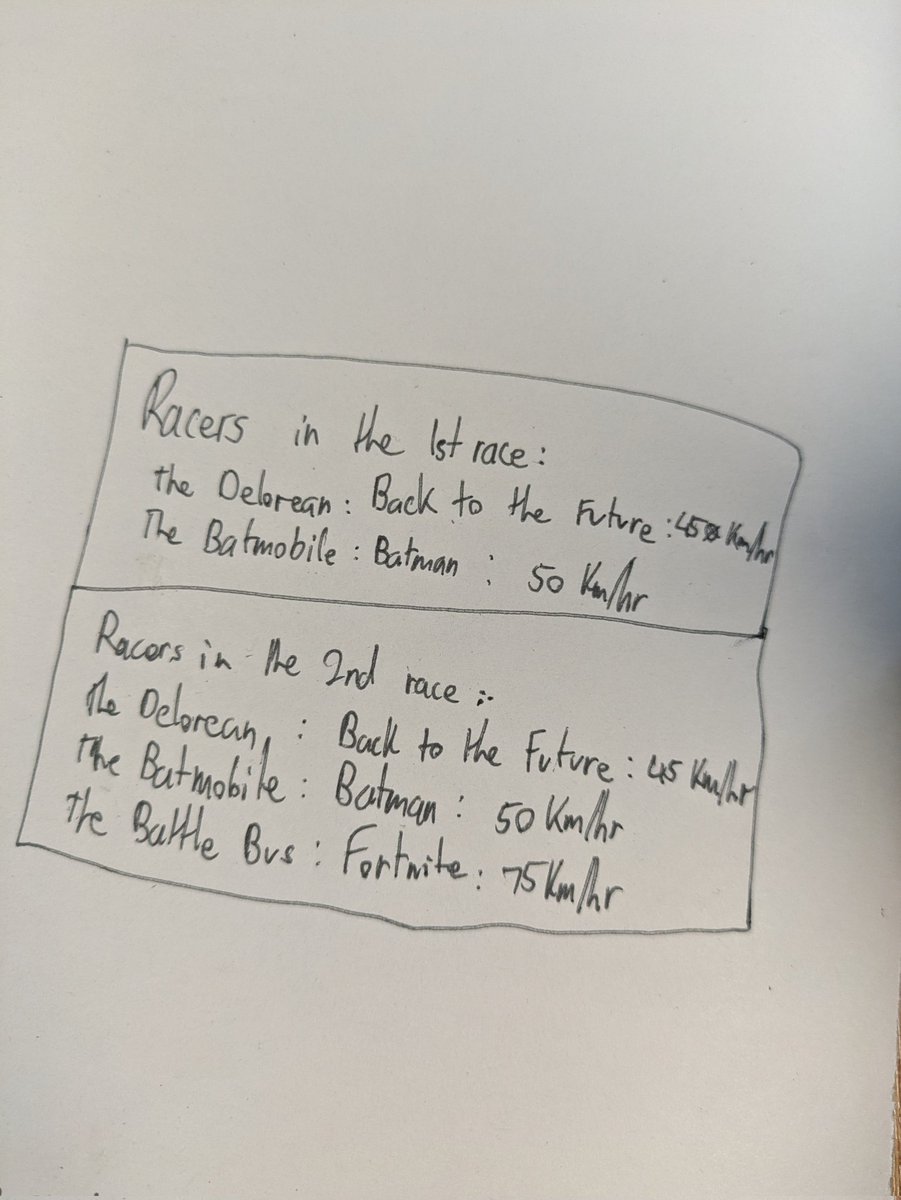 Racers in the 1st race:
the Delorean: Back to the Future: 45 Km/hr
The Batmobile: Batman : 50 Km/hr
Racers in the 2nd race :-
The Delorean : Back to the Future: 45 Km/hr
The Batmobile: Batman: 50 Km/hr
the Battle Bus: Fortnite: 75 Km/hr